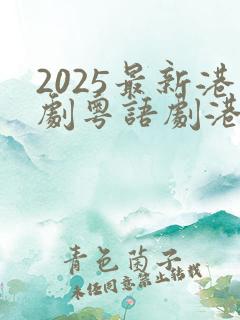 2025最新港
劇粵語劇港
青色茵子
未经同意禁止转载